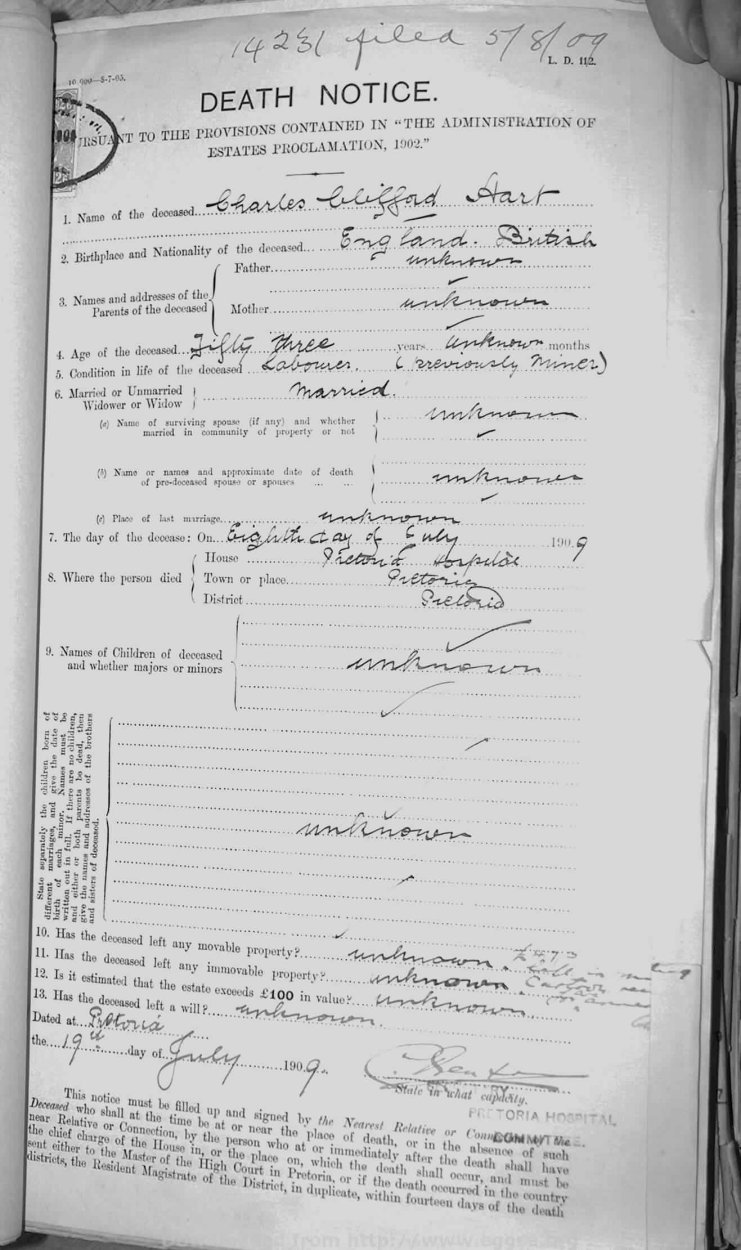 14231 filed 5/8/09
L. D. 112.
10,000—8-7-05.
DEATH NOTICE.
PURSUANT TO THE PROVISIONS CONTAINED IN "THE ADMINISTRATION OF
ESTATES PROCLAMATION, 1902."
1. Name of the deceased Charles Clifford Hart
2. Birthplace and Nationality of the deceased England. British
3. Names and addresses of the Parents of the deceased
Father unknown
Mother unknown
4. Age of the deceased Fifty three years unknown months
5. Condition in life of the deceased Labourer. (previously Miner)
6. Married or Unmarried Widower or Widow Married.
(a) Name of surviving spouse (if any) and whether unknown
married in community of property or not
(b) Name or names and approximate date of death unknown
of pre-deceased spouse or spouses
(c) Place of last marriage unknown
7. The day of the decease: On Eighth day of July 1909
8. Where the person died
House Pretoria Hospital
Town or place Pretoria
District Pretoria
9. Names of Children of deceased
and whether majors or minors unknown
State separately the children born of
different marriages, and give the date of
birth of each minor. Names must be
written out in full. If there are no children,
and either or both parents be dead, then
give the names and addresses of the brothers
and sisters of deceased.
unknown
10. Has the deceased left any movable property? unknown.
11. Has the deceased left any immovable property? unknown.
12. Is it estimated that the estate exceeds £100 in value? unknown
13. Has the deceased left a will? unknown.
Dated at Pretoria
the 19th day of July 1909.
State in what capacity.
PRETORIA HOSPITAL
COMMITTEE.
This notice must be filled up and signed by the Nearest Relative or Connection of the
Deceased who shall at the time be at or near the place of death, or in the absence of such
near Relative or Connection, by the person who at or immediately after the death shall have
the chief charge of the House in, or the place on, which the death shall occur, and must be
sent either to the Master of the High Court in Pretoria, or if the death occurred in the country
districts, the Resident Magistrate of the District, in duplicate, within fourteen days of the death
from http://www.eggsa.org